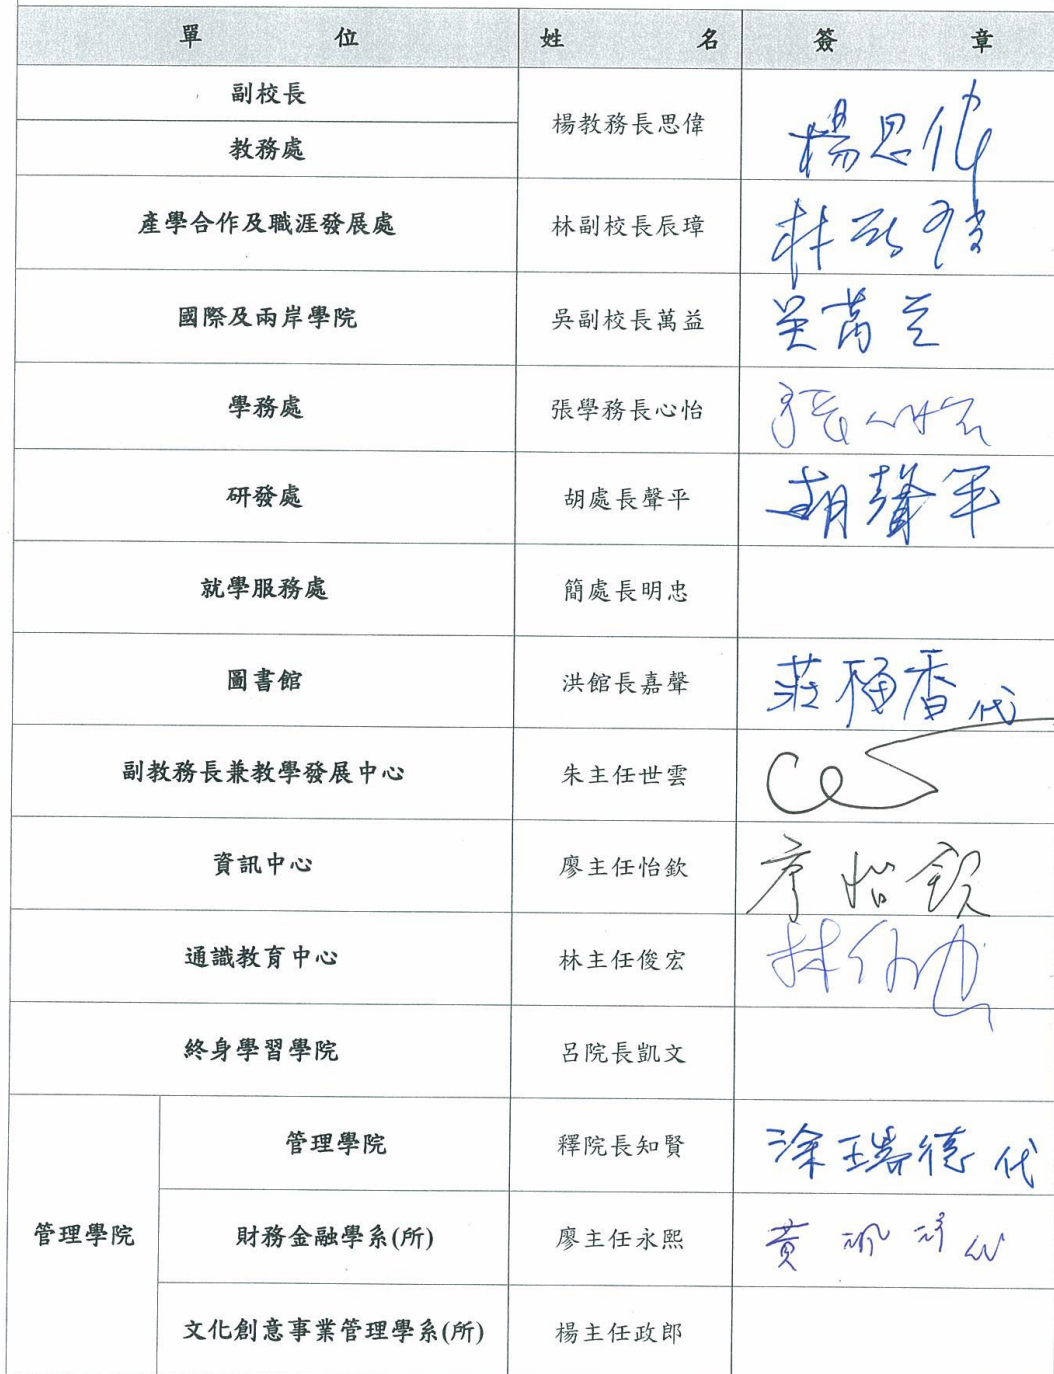 單 位 姓 名 簽 章
副校長
教務處 楊教務長思偉 楊思偉
產學合作及職涯發展處 林副校長辰璋
國際及兩岸學院 吳副校長萬益 吳萬益
學務處 張學務長心怡 張心怡
研發處 胡處長聲平 胡聲平
就學服務處 簡處長明忠
圖書館 洪館長嘉聲 代
副教務長兼教學發展中心 朱主任世雲
資訊中心 廖主任怡欽 廖怡欽
通識教育中心 林主任俊宏 林俊宏
終身學習學院 呂院長凱文
管理學院 管理學院 釋院長知賢 涂瑞德代
財務金融學系(所) 廖主任永熙 黃 代
文化創意事業管理學系(所) 楊主任政郎